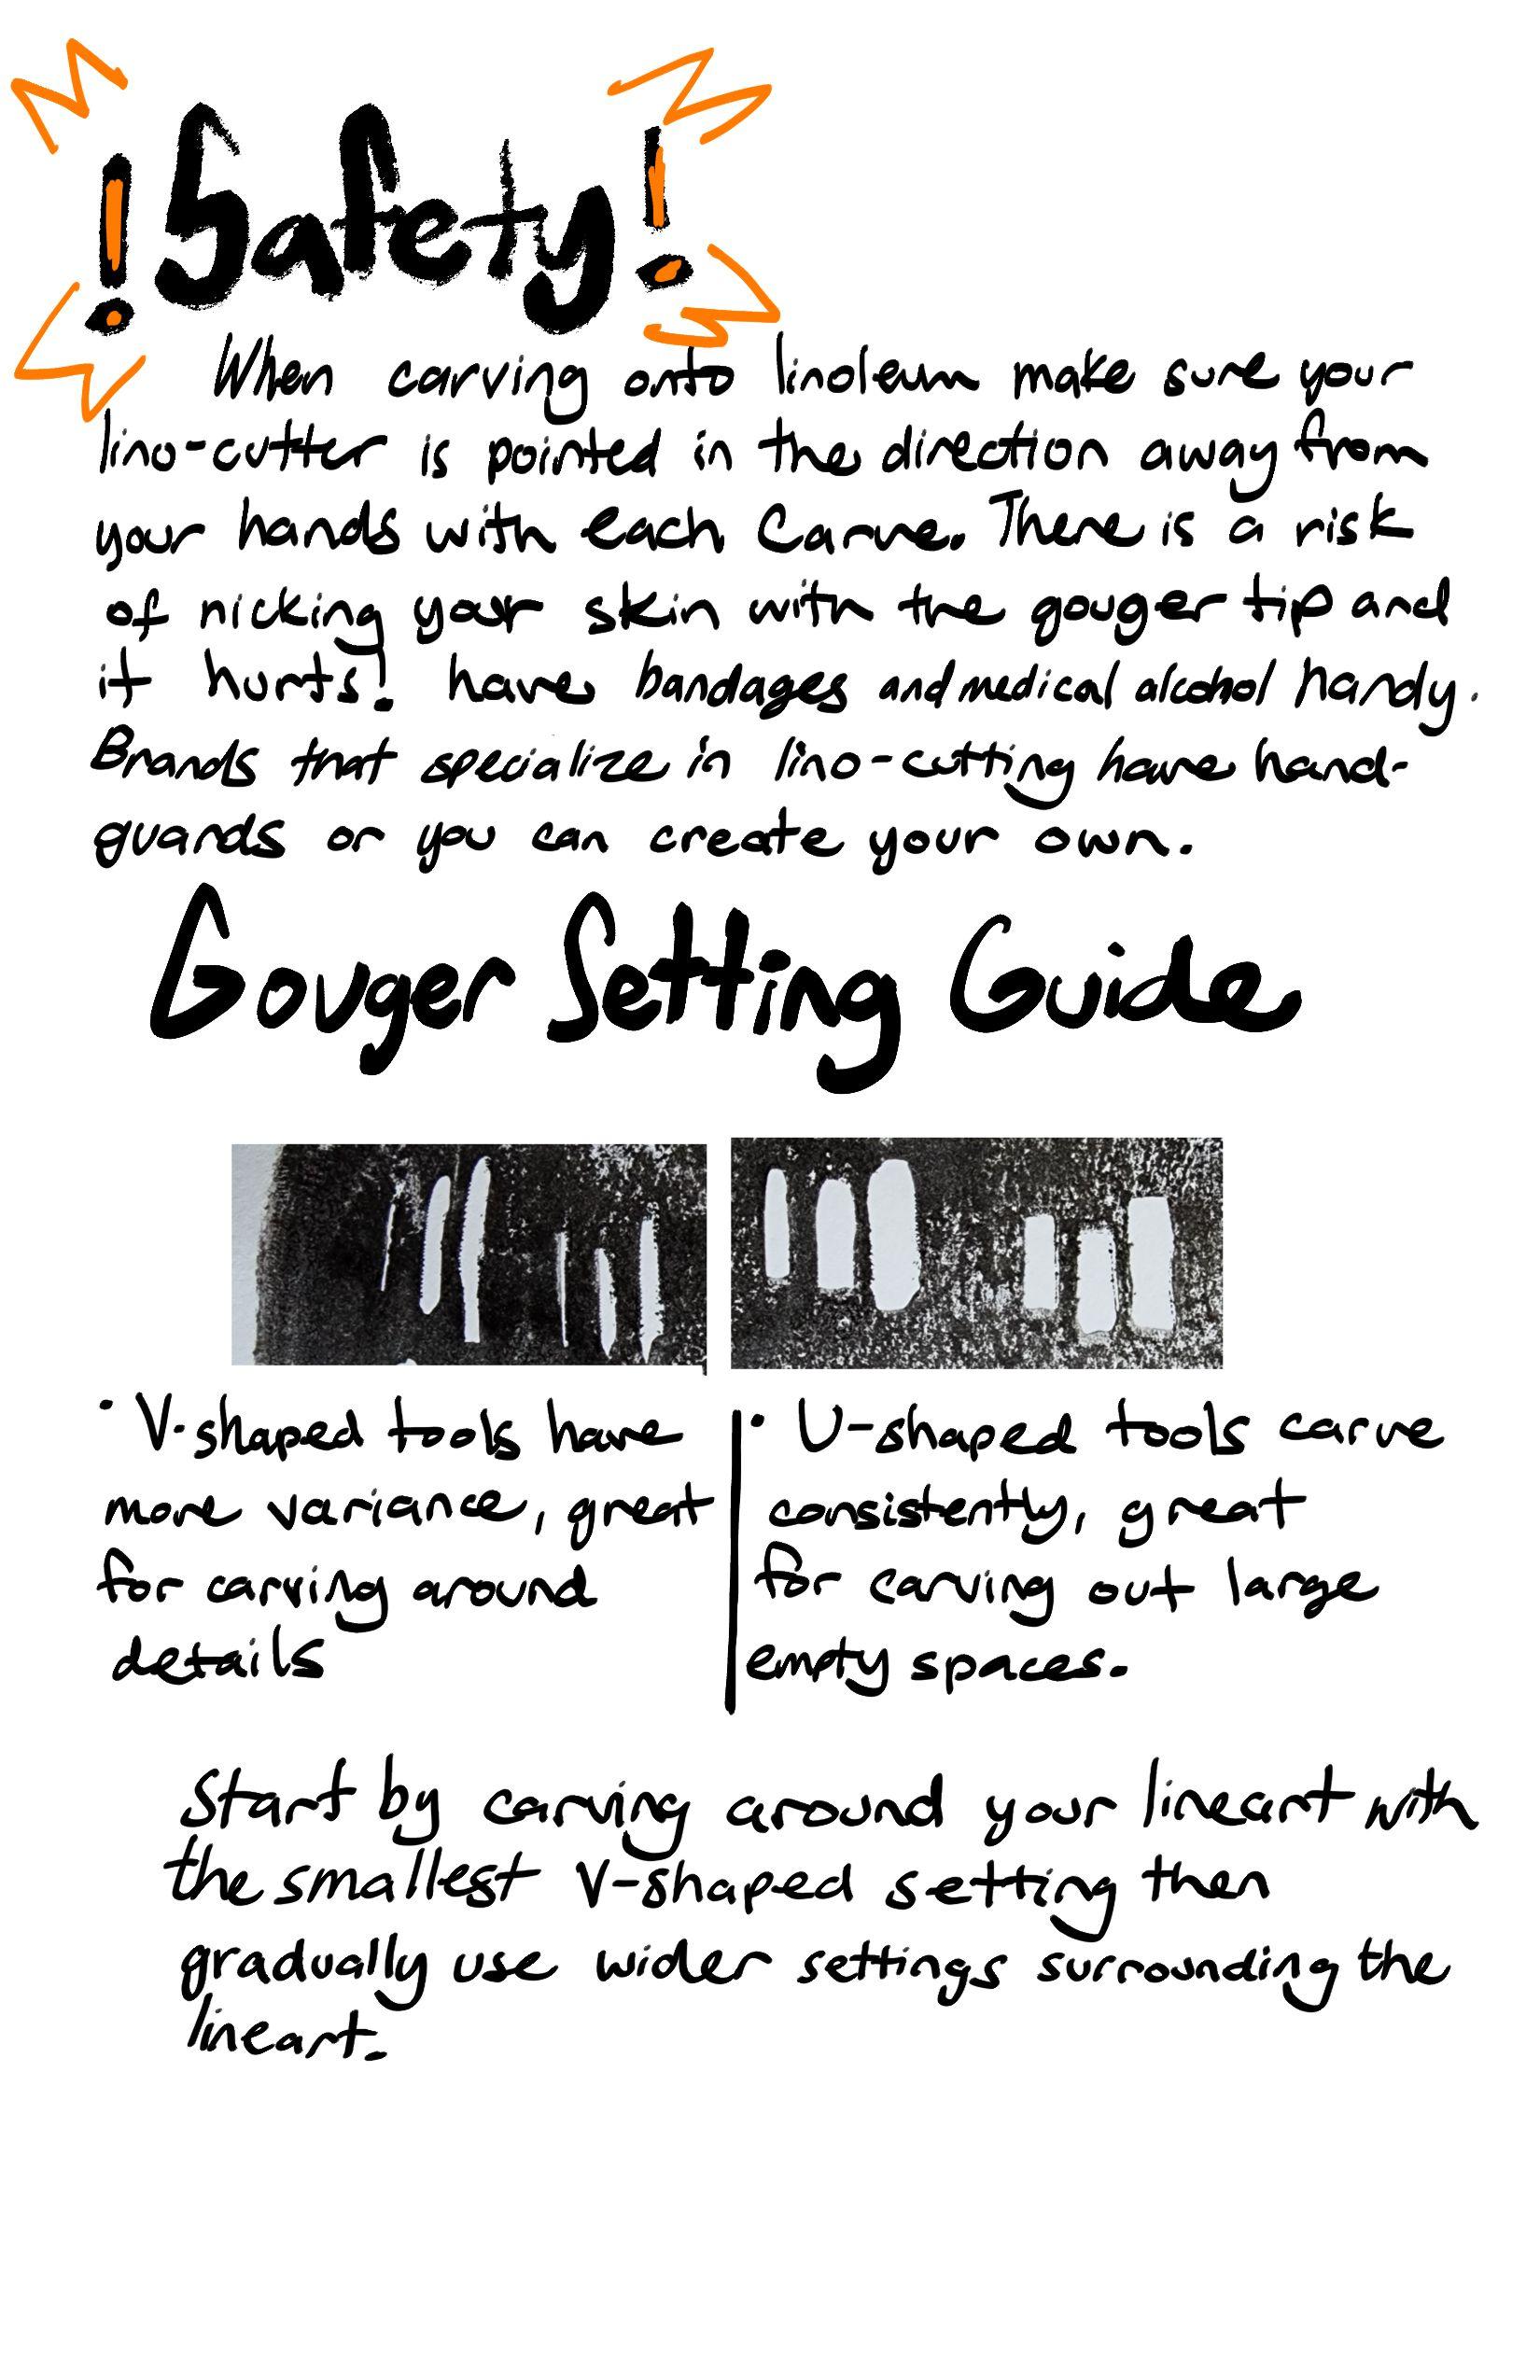 !Safety!
When carving onto linoleum make sure your
lino-cutter is pointed in the direction away from
your hands with each Carve. There is a risk
of nicking your skin with the gouger tip and
it hurts! have bandages and medical alcohol handy.
Brands that specialize in lino-cutting have hand-
guards or you can create your own.
Gouger Setting Guide
· V-shaped tools have
more variance, great
for carving around
details
· U-shaped tools carve
consistently, great
for carving out large
empty spaces.
Start by carving around your lineart with
the smallest V-shaped setting then
gradually use wider settings surrounding the
lineart.